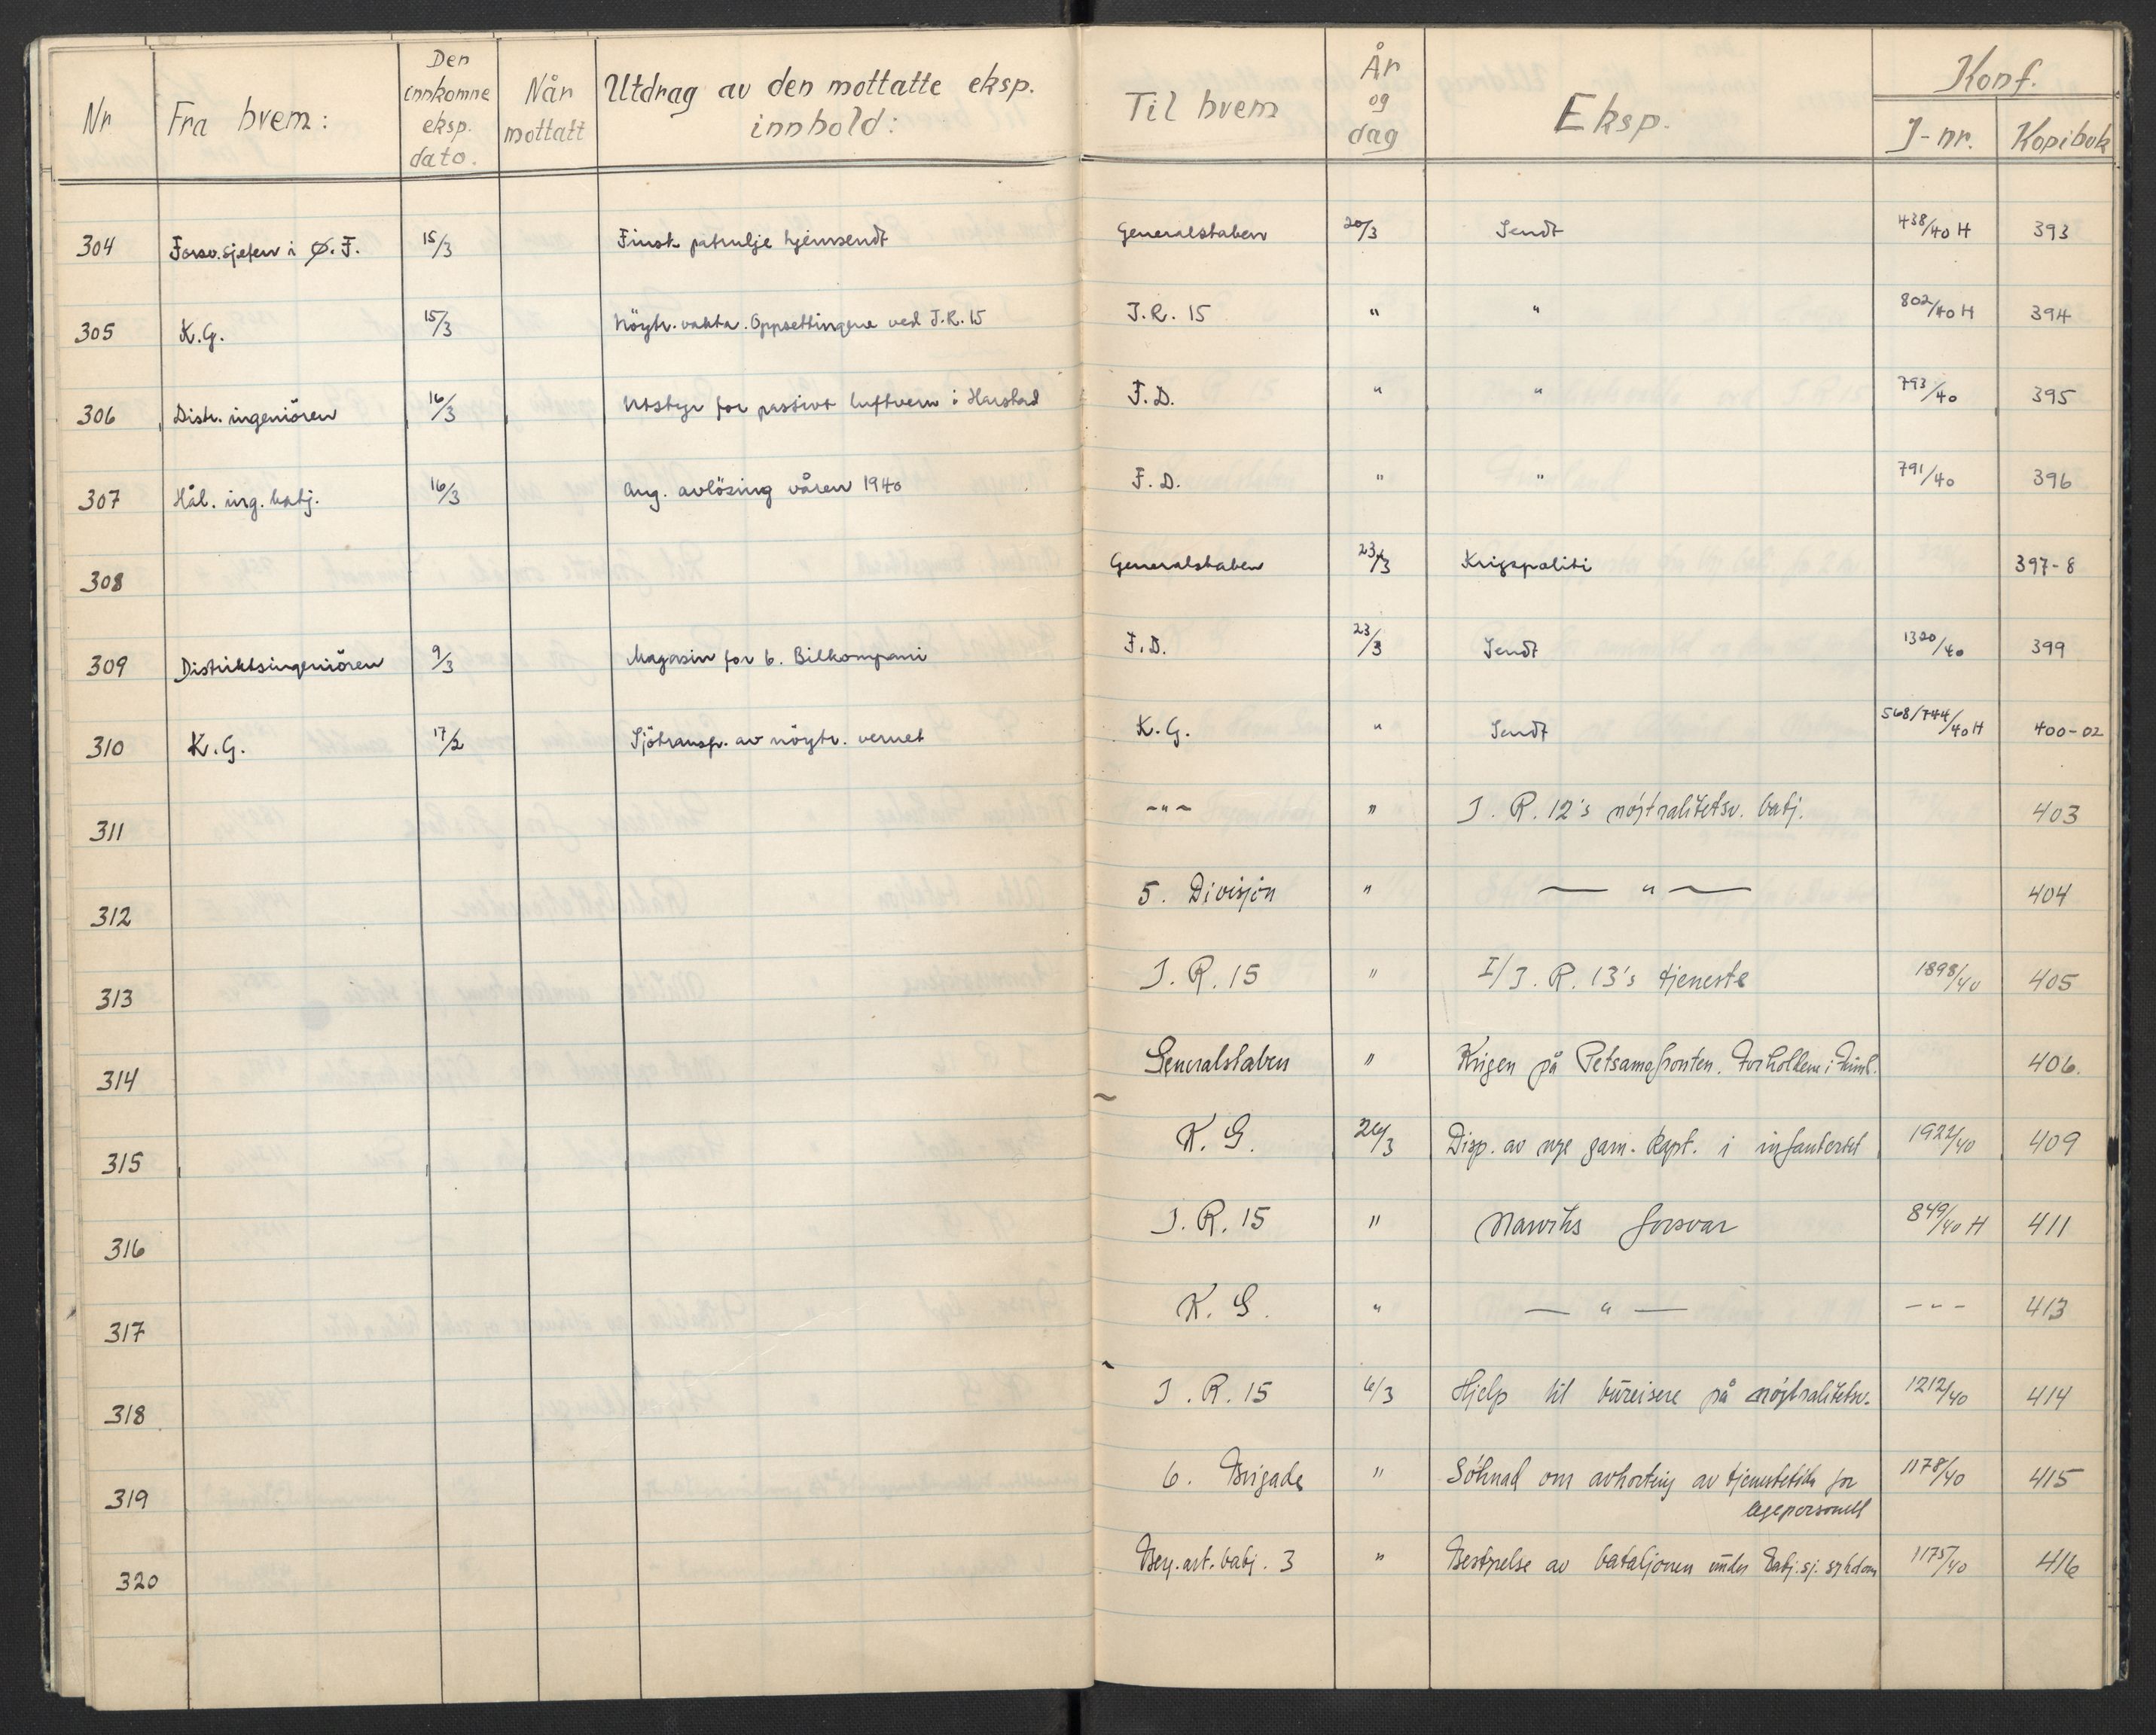 Nr | Fra hvem: | Den innkomne eksp. dato. | Når mottatt | Utdrag av den mottatte eksp. innhold: | Til hvem | År og dag | Eksp. | Konf. J-nr. | Kopibok
304 | Forsv.sjefen i Ø.F. | 15/3 | | Finsk patrulje hjemsendt | Generalstaben | 20/3 | Sendt | 438/40 H | 393
305 | K.G. | 15/3 | | Nöytr.vakta. Oppsettingene ved J.R.15 | J.R. 15 | " | " | 802/40 H | 394
306 | Distr. ingeniören | 16/3 | | Utstyr for passivt luftvern i Harstad | F.D. | " | " | 793/40 | 395
307 | Hål. ing. batj. | 16/3 | | Ang. avlösing våren 1940 | F.D. | " | " | 791/40 | 396
308 | | | | | Generalstaben | 23/3 | Krigspoliti | | 397-8
309 | Distriktsingeniören | 9/3 | | Magasin for 6. Bilkompani | F.D. | 23/3 | Sendt | 1320/40 | 399
310 | K.G. | 17/2 | | Sjötransp. av nöytr. vernet | K.G. | " | Sendt | 568/744/40 H | 400-02
311 | | | | | -"- | " | J.R. 12's nöytralitetsv. batj. | | 403
312 | | | | | 5. Divisjon | " | — " — | | 404
313 | | | | | J.R. 15 | " | I/J.R. 13's tjeneste | 1898/40 | 405
314 | | | | | Generalstaben | " | Krigen på Petsamofronten. Forholdene i Finnl. | | 406.
315 | | | | | K.G. | 26/3 | Disp. av nye garn. kapt. i infanteriet | 1922/40 | 409
316 | | | | | J.R. 15 | " | Narviks forsvar | 849/40 H | 411
317 | | | | | K.G. | " | — " — | - " - | 413
318 | | | | | J.R. 15 | 6/3 | Hjelp til bureisere på nöytralitetsv. | 1212/40 | 414
319 | | | | | 6. Brigade | " | Söknad om avkorting av tjenestetida for
legepersonell | 1178/40 | 415
320 | | | | | Berg.art.batj. 3 | " | Bestyrelse av bataljonen under batj.sj. sykdom | 1175/40 | 416